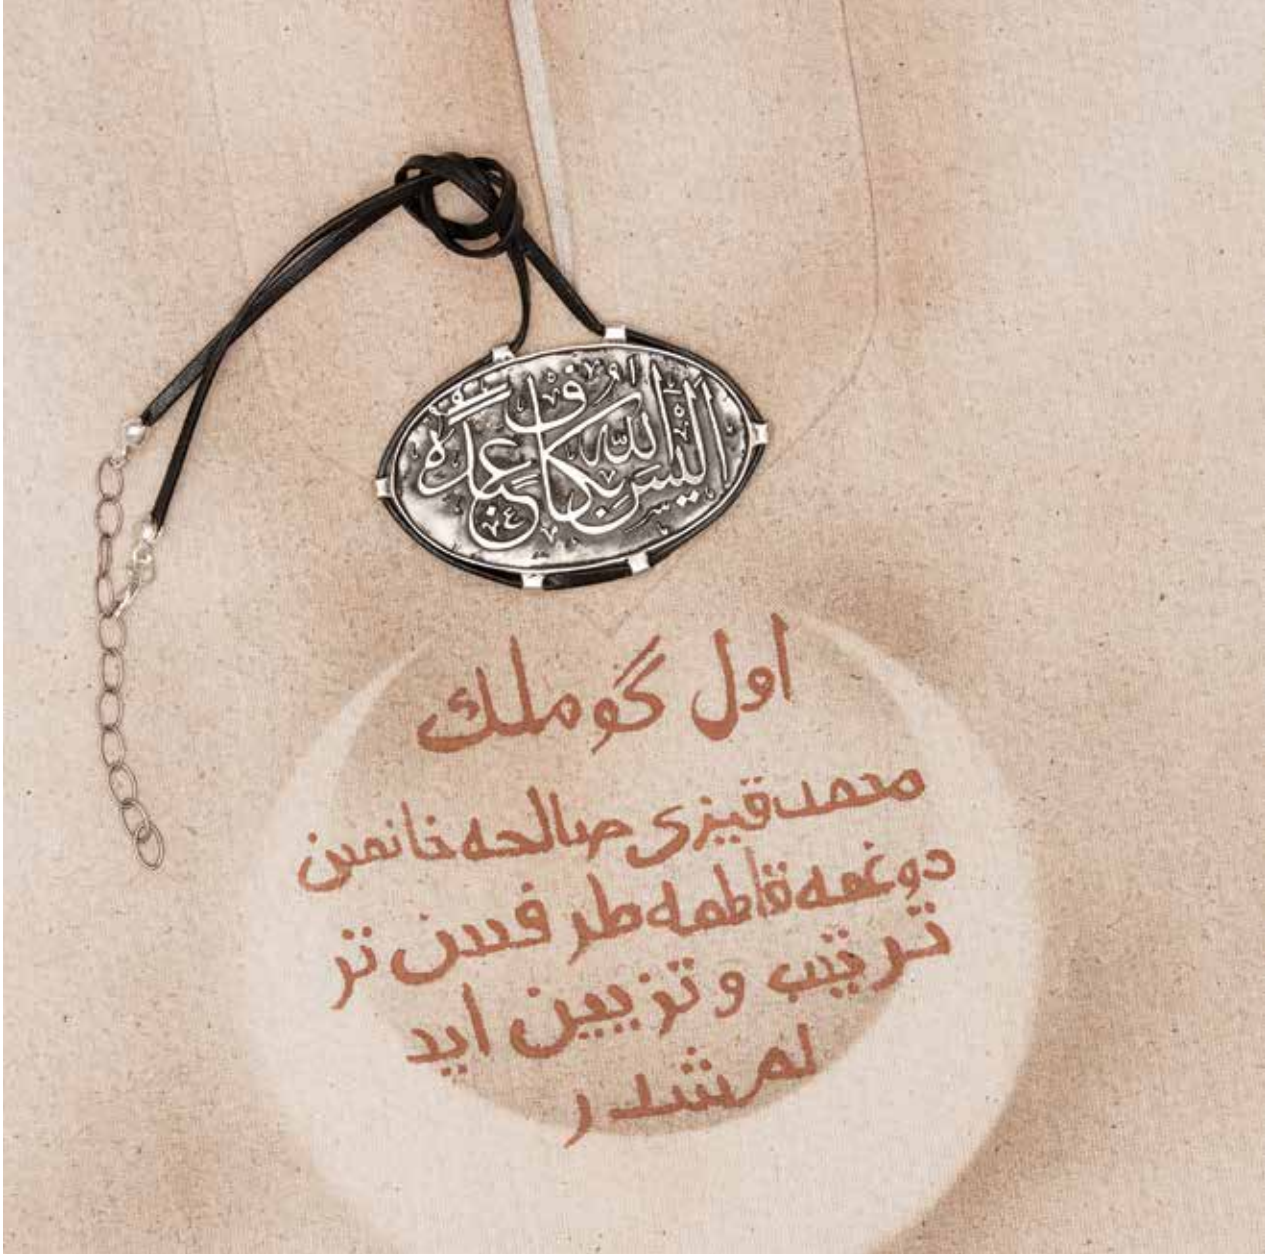 أليس الله بكاف عبده
اول گوملك
محمد قيزی صالحه خانمن
دوغمه فاطمه طرفسن تر
ترتیب و تزیین اید
لمشدر